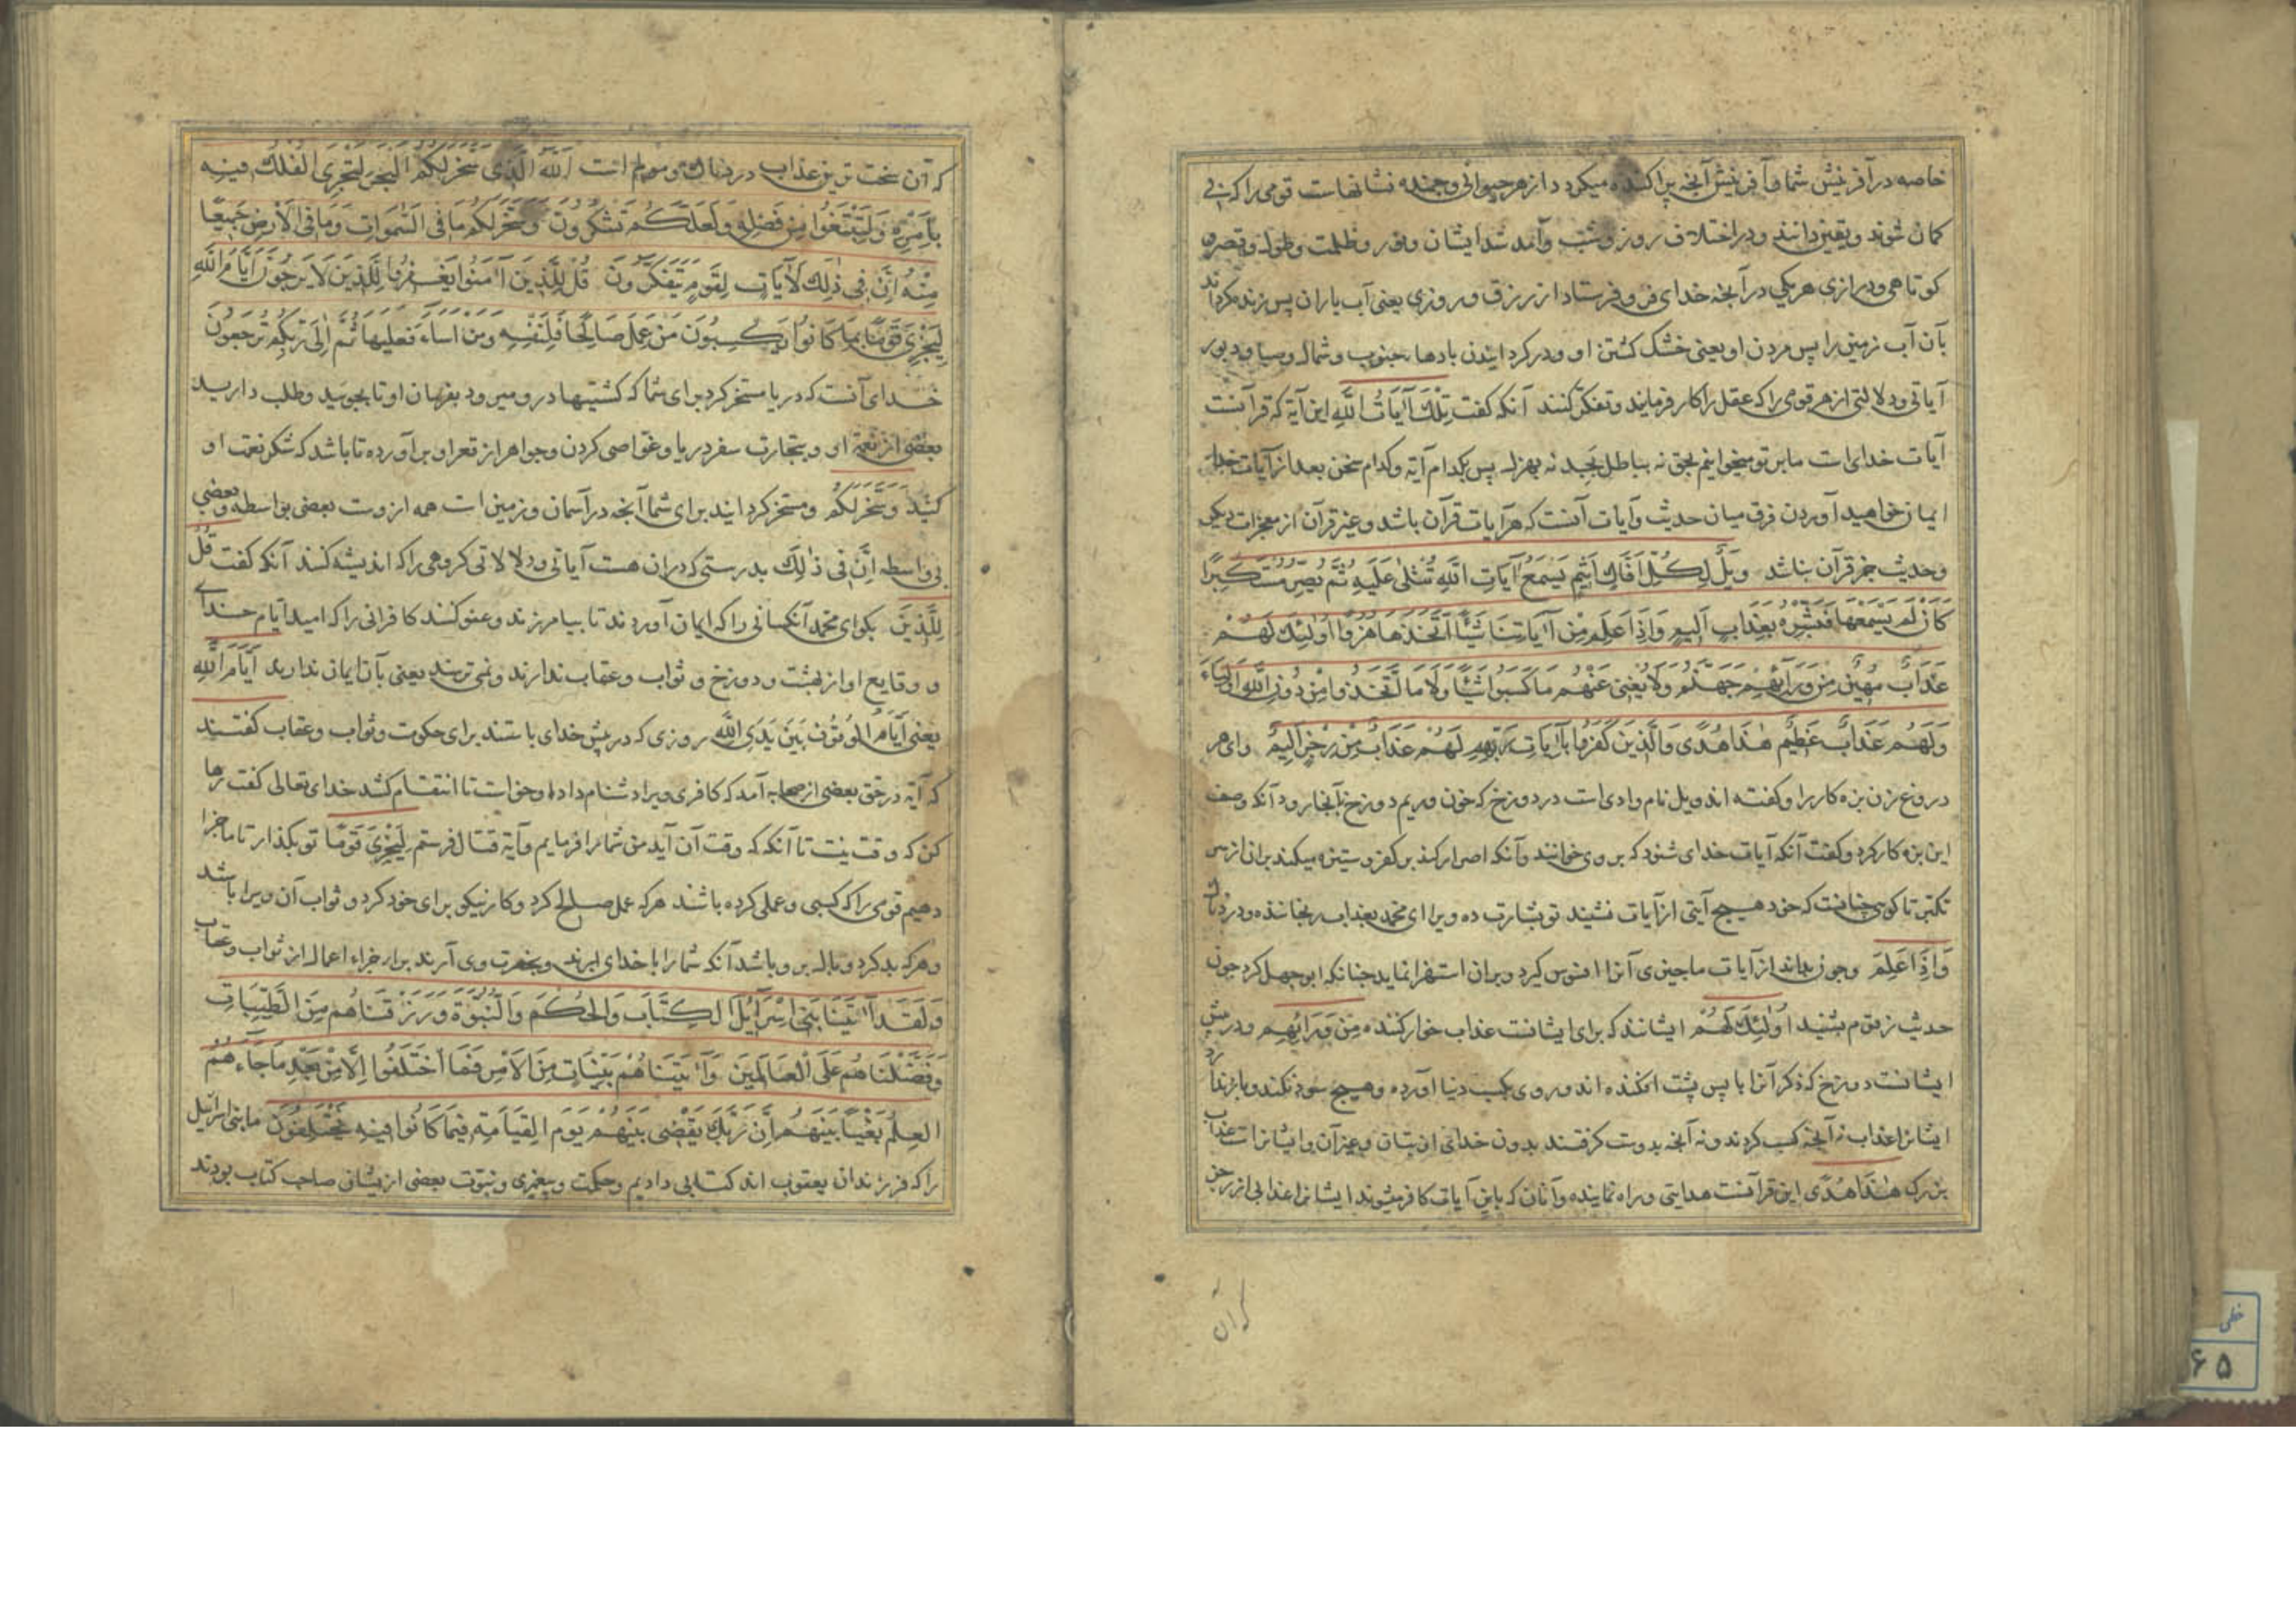 خاصه در آفرینش شما و آفرینش آنچه پراکنده میکرد از هر حیوانی و جمنده نشانهاست قومی را که بی
کمان شوند و یقین دانند و در اختلاف روز و شب و آمد شد ایشان و نور و ظلمت و طول و قصر
کوتاهی و درازی هر یکی در آنچه خدای فرو فرستاد از رزق و روزی یعنی آب باران پس زنده کرداند
بآن آب زمین را پس مردن او یعنی خشک کشتن او و در کردانیدن بادها جنوب و شمال و صبا و دبور
آیاتی و دلالتی از هر قومی را که عقل را کار فرمایند و تفکر کنند آنکه کفت تِلْكَ آيَاتُ اللَّهِ این آیه که قرآنست
آیات خدای است ما بر تو میخوانیم بحق نه بباطل بجد نه بهزل پس بکدام آیة و کدام سخن بعد از آیات خدا
ایمان خواهید آوردن فرق میان حدیث و آیات آنست که هر آیات قرآن باشد و غیر قرآن از معجزات دیکر
و حدیث جز قرآن نباشد وَيْلٌ لِكُلِّ أَفَّاكٍ أَثِيمٍ يَسْمَعُ آيَاتِ اللَّهِ تُتْلَى عَلَيْهِ ثُمَّ يُصِرُّ مُسْتَكْبِرًا
كَأَنْ لَمْ يَسْمَعْهَا فَبَشِّرْهُ بِعَذَابٍ أَلِيمٍ وَإِذَا عَلِمَ مِنْ آيَاتِنَا شَيْئًا اتَّخَذَهَا هُزُوًا أُولَئِكَ لَهُمْ
عَذَابٌ مُهِينٌ مِنْ وَرَائِهِمْ جَهَنَّمُ وَلَا يُغْنِي عَنْهُمْ مَا كَسَبُوا شَيْئًا وَلَا مَا اتَّخَذُوا مِنْ دُونِ اللَّهِ أَوْلِيَاءَ
وَلَهُمْ عَذَابٌ عَظِيمٌ هَذَا هُدًى وَالَّذِينَ كَفَرُوا بِآيَاتِ رَبِّهِمْ لَهُمْ عَذَابٌ مِنْ رِجْزٍ أَلِيمٌ وای هر
دروغ زن بزه کار را و کفته اند ویل نام وادی است در دوزخ که خون و ریم دوزخ بآنجا رود آنکه وصف
این بزه کار کرد و کفت آنکه آیات خدای شنود که بر وی خوانند و آنکه اصرار کند بر کفر و ستیزه میکند بر آن از سر
تکبر تا کوی چنانست که خود هیچ آیتی از آیات نشنید تو بشارت ده ویرا ای محمد بعذاب رنجاننده و دردناک
وَإِذَا عَلِمَ و چون بداند از آیات ما چیزی آنرا افسوس کیرد و بر آن استهزا نماید چنانکه ابو جهل کرد چون
حدیث زقوم بشنید أُولَئِكَ لَهُمْ ایشانند که برای ایشانست عذاب خوار کننده مِنْ وَرَائِهِمْ و در پیش
ایشانست دوزخ که ذکر آنرا با پس پشت افکنده اند و روی بکسب دنیا آورده و هیچ سود نکند و باز ندارد
ایشانرا عذاب نه آنچه کسب کردند و نه آنچه بدوست کرفتند بدون خدای از بتان و غیر آن و ایشانراست عذاب
بزرک هَذَا هُدًى این قرآنست هدایتی و راه نماینده و آنان که باین آیات کافر میشوند ایشانرا عذابی از رجز
که آن سخت ترین عذاب دردناک و مولم است اللَّهُ الَّذِي سَخَّرَ لَكُمُ الْبَحْرَ لِتَجْرِيَ الْفُلْكُ فِيهِ
بِأَمْرِهِ وَلِتَبْتَغُوا مِنْ فَضْلِهِ وَلَعَلَّكُمْ تَشْكُرُونَ وَسَخَّرَ لَكُمْ مَا فِي السَّمَوَاتِ وَمَا فِي الْأَرْضِ جَمِيعًا
مِنْهُ إِنَّ فِي ذَلِكَ لَآيَاتٍ لِقَوْمٍ يَتَفَكَّرُونَ قُلْ لِلَّذِينَ آمَنُوا يَغْفِرُوا لِلَّذِينَ لَا يَرْجُونَ أَيَّامَ اللَّهِ
لِيَجْزِيَ قَوْمًا بِمَا كَانُوا يَكْسِبُونَ مَنْ عَمِلَ صَالِحًا فَلِنَفْسِهِ وَمَنْ أَسَاءَ فَعَلَيْهَا ثُمَّ إِلَى رَبِّكُمْ تُرْجَعُونَ
خدای آنست که دریا مسخر کرد برای شما که کشتیها در و میرود بفرمان او تا بجویید و طلب دارید
بعضی از نعمة او و بتجارت سفر دریا و غواصی کردن و جواهر از قعر او بر آورده تا باشد که شکر نعت او
کنید وَسَخَّرَ لَكُمْ و مسخر کردانید برای شما آنچه در آسمان و زمین است همه از وست بعضی بواسطه و بعضی
بی واسطه إِنَّ فِي ذَلِكَ بدرستی که در ان هست آیاتی و دلالاتی کروهی را که اندیشه کنند آنکه کفت قُلْ
لِلَّذِينَ بکو ای محمد آنکسانی را که ایمان آوردند تا بیامرزند و عفو کنند کافرانی را که امید ایام خدای
و وقایع او از بهشت و دوزخ و ثواب و عقاب ندارند و نمی ترسند یعنی بآن ایمان ندارند أَيَّامَ اللَّهِ
یعنی أَيَّامُ الْوُقُوفِ بَيْنَ يَدَيِ اللَّهِ روزی که در پیش خدای باستند برای حکومت و ثواب و عقاب کفتند
که آیة در حق بعضی از صحابه آمد که کافری ویرا دشنام داد او خواست تا انتقام کشد خدای تعالی کفت رها
کن که وقت نیست تا آنکه که وقت آن آید من شما را فرمایم و آیة قتال فرستم لِيَجْزِيَ قَوْمًا تو بکذار تا ما جزا
دهیم قومی را که کسبی و عملی کرده باشند هر که عمل صالح کرد و کار نیکو برای خود کرد و ثواب آن ویرا باشد
و هر که بد کرد وبال بر و باشد آنکه شما را با خدای برند و بحضرت وی آرند برای جزاء اعمال از ثواب و عقاب
وَلَقَدْ آتَيْنَا بَنِي إِسْرَائِيلَ الْكِتَابَ وَالْحُكْمَ وَالنُّبُوَّةَ وَرَزَقْنَاهُمْ مِنَ الطَّيِّبَاتِ
وَفَضَّلْنَاهُمْ عَلَى الْعَالَمِينَ وَآتَيْنَاهُمْ بَيِّنَاتٍ مِنَ الْأَمْرِ فَمَا اخْتَلَفُوا إِلَّا مِنْ بَعْدِ مَا جَاءَهُمُ
الْعِلْمُ بَغْيًا بَيْنَهُمْ إِنَّ رَبَّكَ يَقْضِي بَيْنَهُمْ يَوْمَ الْقِيَامَةِ فِيمَا كَانُوا فِيهِ يَخْتَلِفُونَ ما بنی اسرائیل
را که فرزندان یعقوب اند کتابی دادیم و حکمت و پیغمبری و نبوت بعضی از یشان صاحب کتاب بودند
که آن
خطی
۶۵